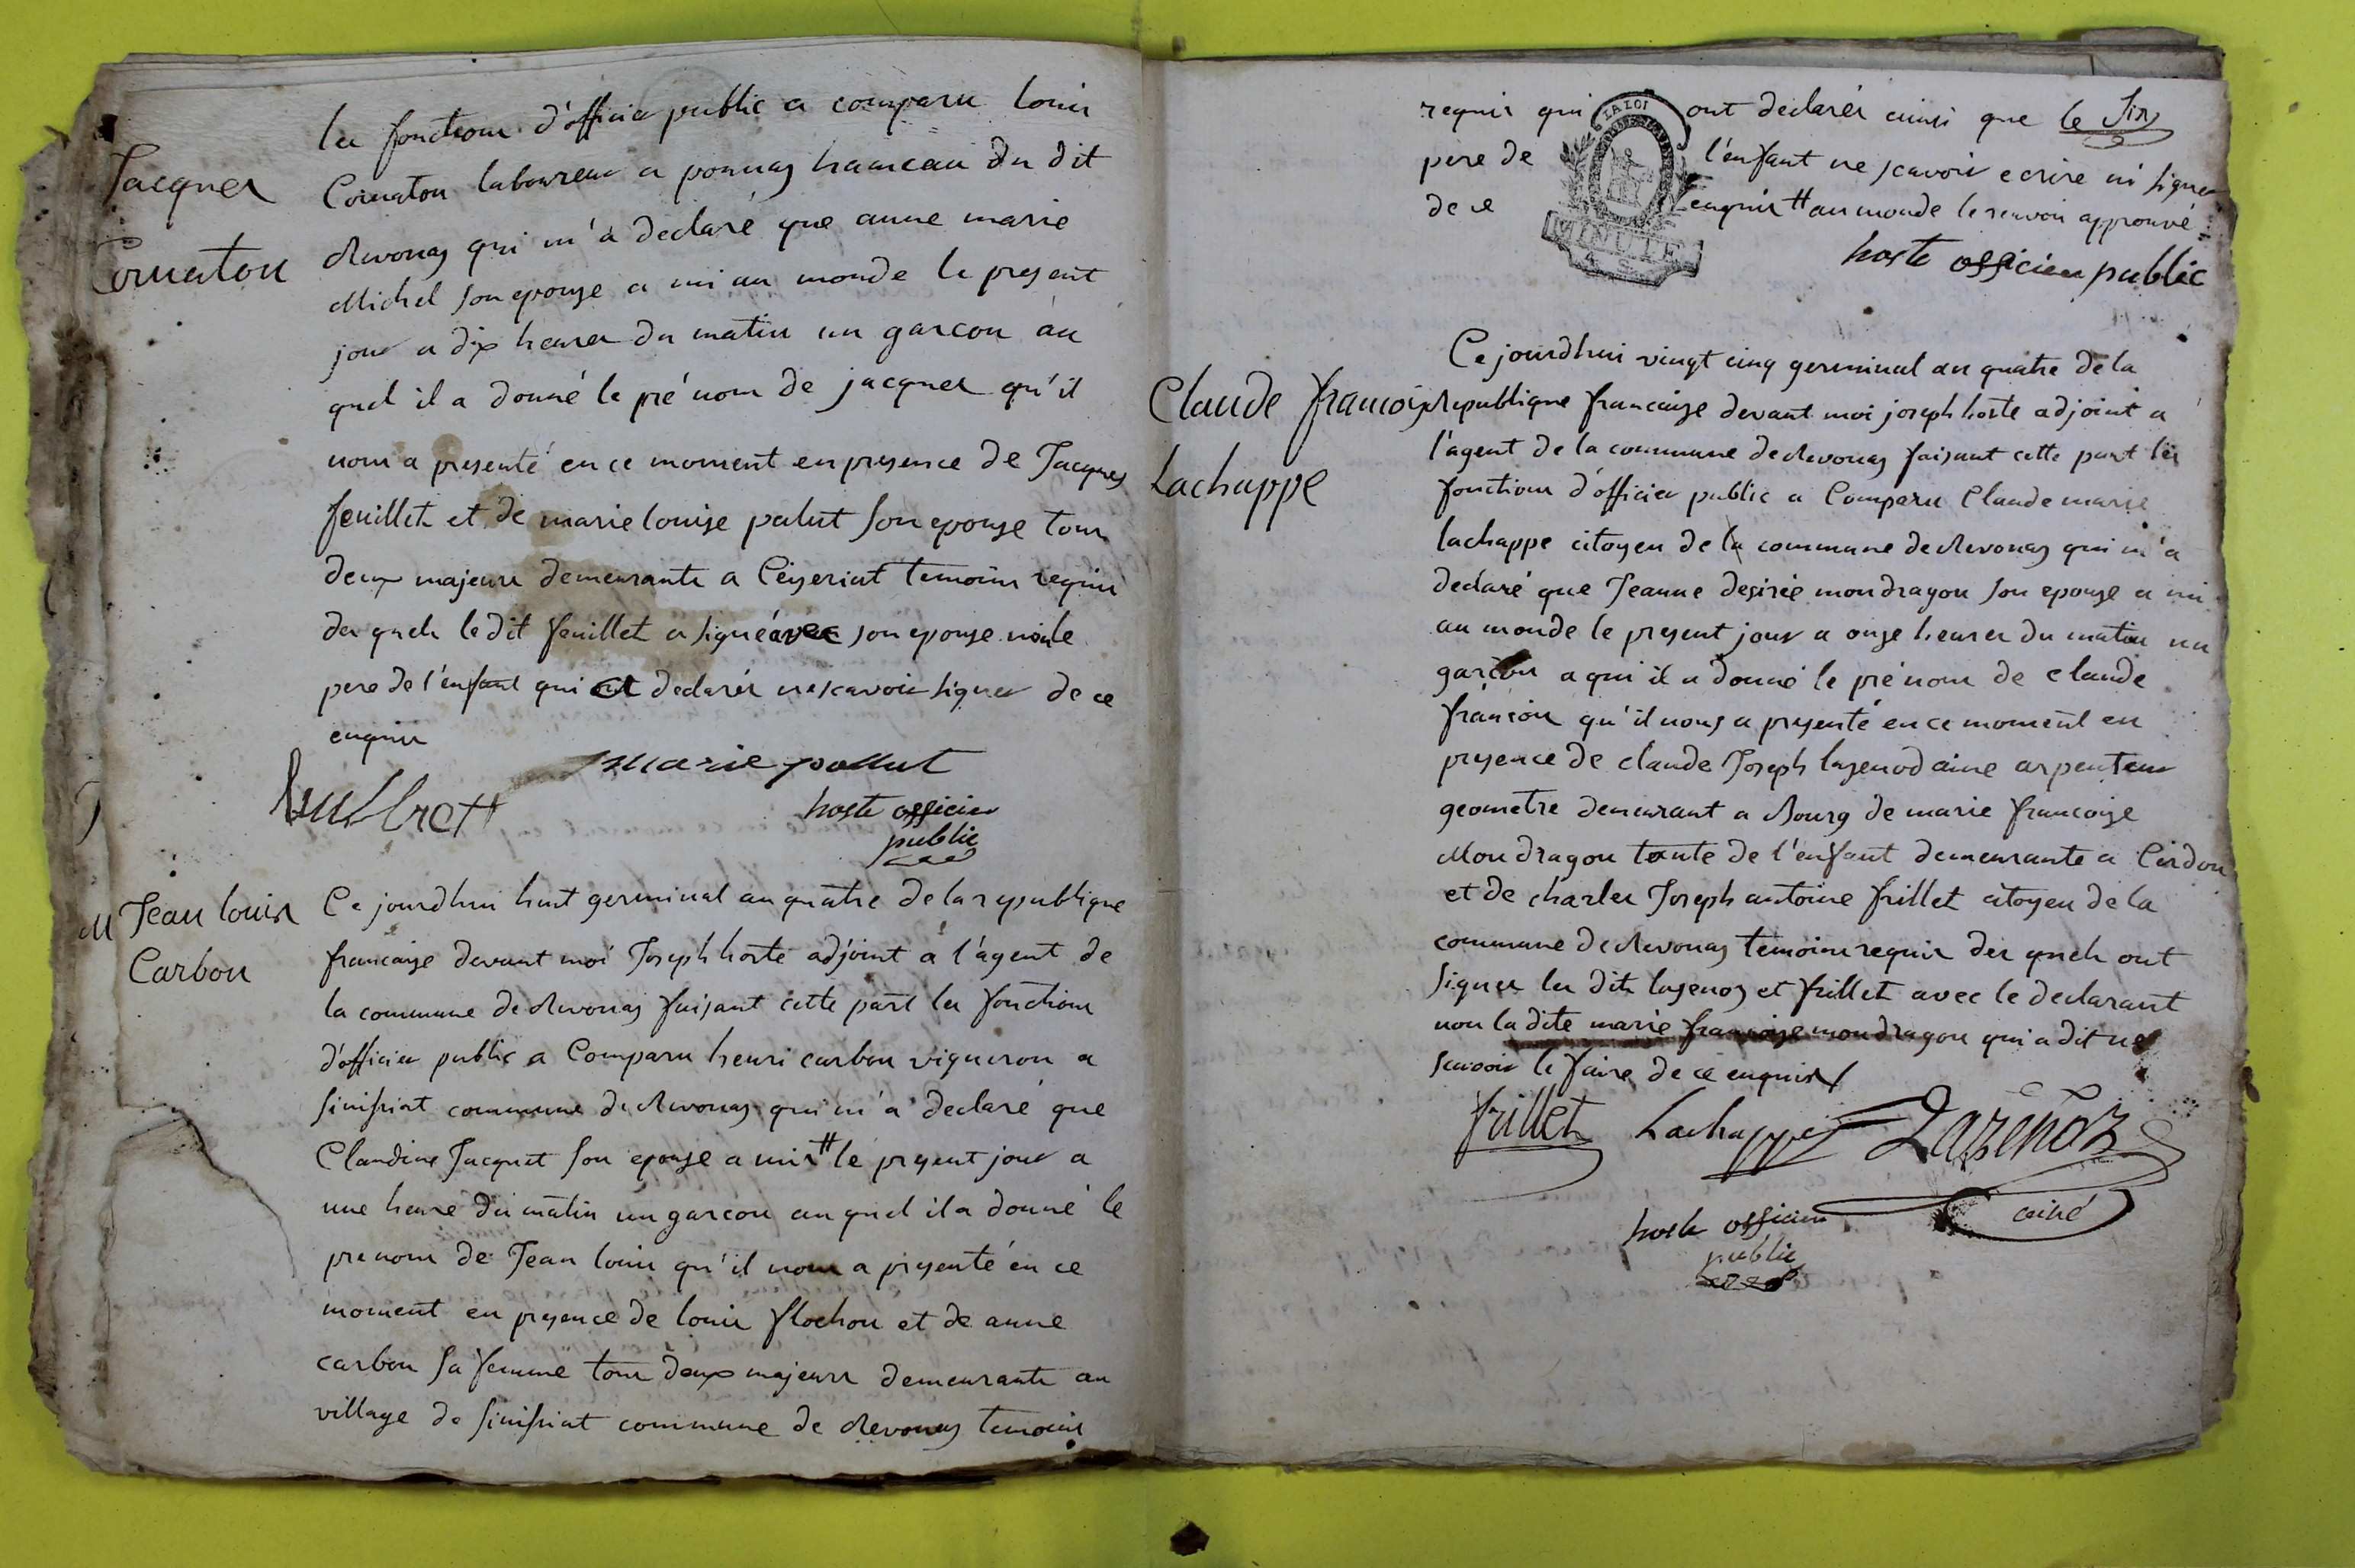 Jacques
Cornaton
les fonctions d'officier public a comparu louis
Cornaton laboureur a pomas hameau du dit
Revonas qui m'a declaré que anne marie
Michel son epouse a mis au monde le present
jour a dix heures du matin un garcon au
quel il a donné le pré nom de jacques qu'il
nous a presenté en ce moment en presence de Jacques
feuillet et de marie louise palut son epouse tous
deux majeurs demeurants a Ceyseriat temoins requis
des quels le dit feuillet a signé avec son epouse non le
pere de l'enfant qui a declarés ne scavoir signer de ce
enquis
marie pallut
hoste officier
public
M Jean louis
Carbon
Ce jourdhui huit germinal an quatre de la republique
francaise devant moi Joseph hoste adjoint a l'agent de
la commune de Revonas faisant cette part les fonctions
d'officier public a Comparu henri carbon vigneron a
Sinissiat commune de Revonas qui m'a declaré que
Claudine Jacquet son epouse a mis # le present jour a
une heure du matin un garcon au quel il a donné le
prenom de Jean louis qu'il nous a presenté en ce
moment en presence de louis flochon et de anne
carbon sa femme tous deux majeurs demeurants au
village de Sinissiat commune de Revonas temoins
requis qui ont declarés ainsi que le
pere de l'enfant ne scavoir ecrire ni signer
de ce enquis # au monde le renvoi approuvé
LA LOI
MINUTE
hoste officier public
Claude francois
Lachappe
Ce jourdhui vingt cinq germinal an quatre de la
Republique francaise devant moi joseph hoste adjoint a
l'agent de la commune de Revonas faisant cette part les
fonctions d'officier public a Comparu Claude marie
lachappe citoyen de la commune de Revonas qui m'a
declaré que Jeanne desirée mondragon son epouse a mis
au monde le present jour a onze heures du matin un
garcon a qui il a donné le pré nom de claude
francois qu'il nous a presenté en ce moment en
presence de claude Joseph lazenod aine arpenteur
geometre demeurant a Bourg de marie francoise
Mondragon tante de l'enfant demeurante a Cerdon
et de charles Joseph antoine frillet citoyen de la
commune de Revonas temoins requis des quels ont
signer les dits lazenoz et frillet avec le declarant
non la dite marie francoise mondragon qui a dit ne
scavoir le faire de ce enquis
frillet Lachappe Lazenoz
ainé
hoste officier
public